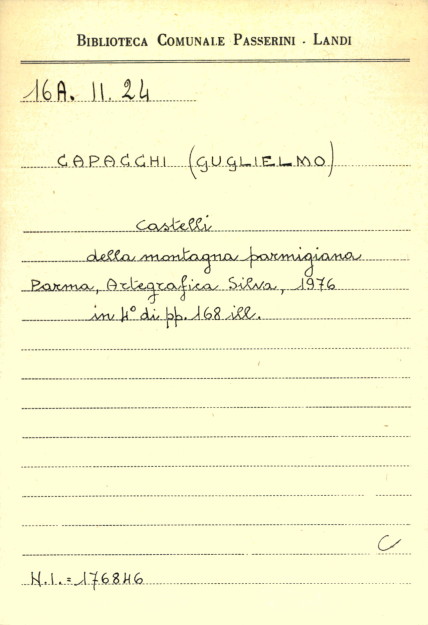 BIBLIOTECA COMUNALE PASSERINI - LANDI
16A. II. 24
CAPACCHI (GUGLIELMO)
Castelli
della montagna parmigiana
Parma, Artegrafica Silva, 1976
in 4° di pp. 168 ill.
C
N.I.=176846